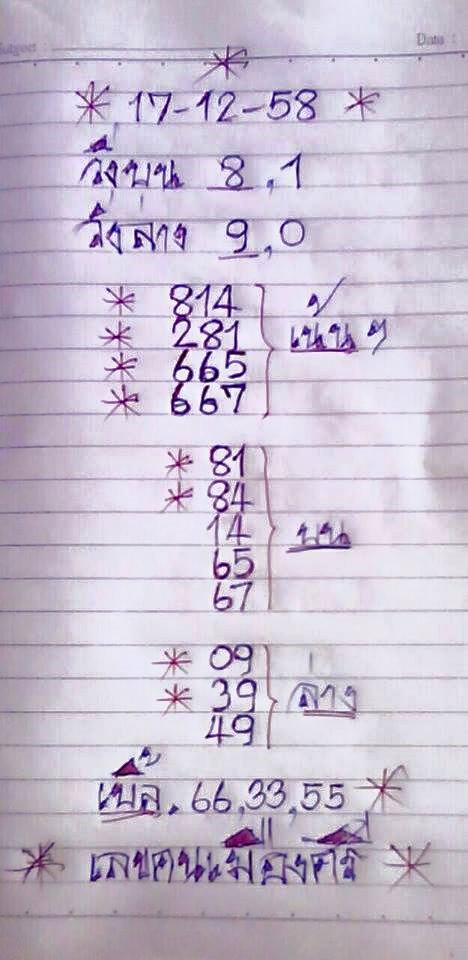 Subject :
Date :
17-12-58
วิ่งบน 8,1
วิ่งล่าง 9,0
814
281
665
667
เน้นๆ
81
84
14
65
67
บน
09
39
49
ล่าง
เบิ้ล. 66,33,55